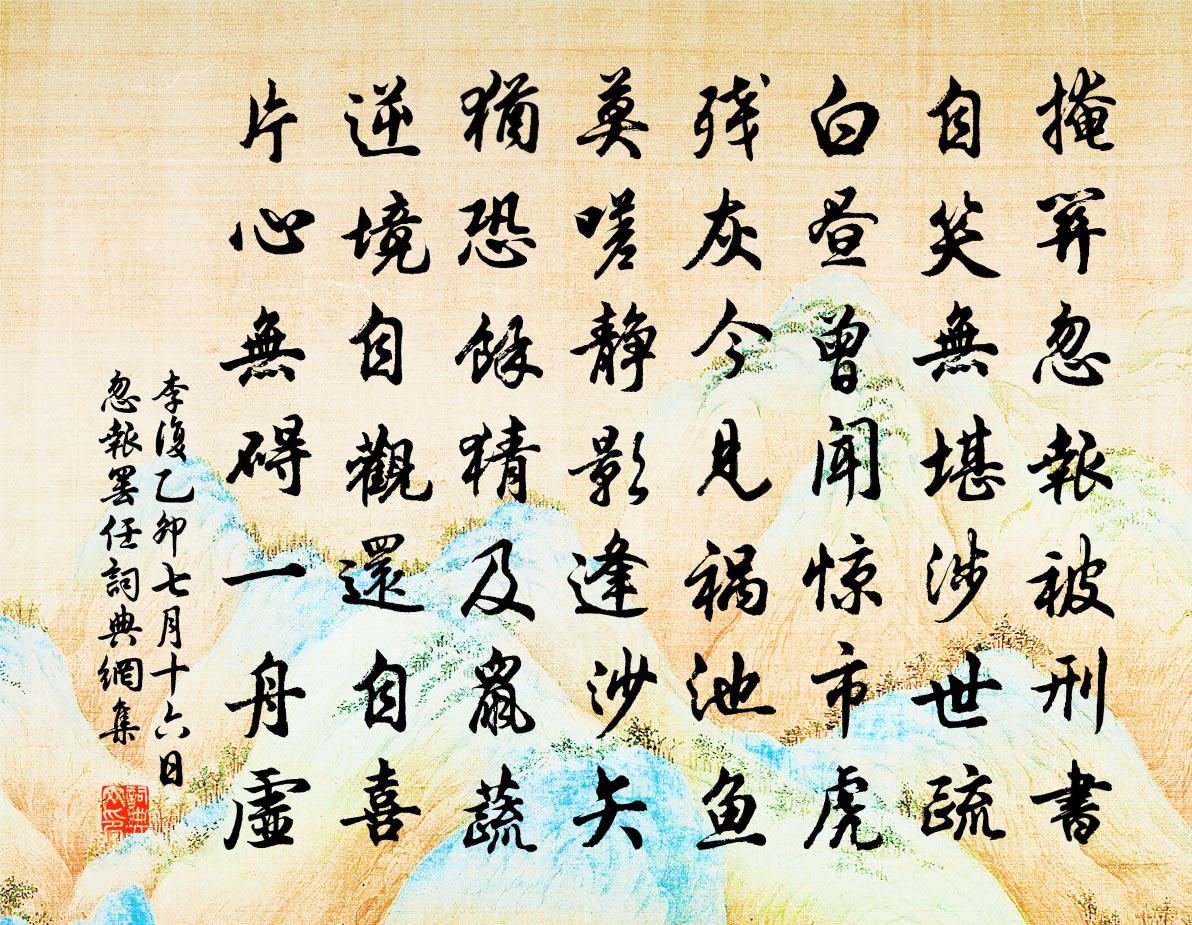 掩關忽報被刑書
自笑無堪涉世疏
白昼曾聞惊市虎
残灰今見祸池鱼
莫嗟静影逢沙矢
猶恐餘猜及鼠蔬
逆境自觀還自喜
片心無碍一舟虚
李復乙卯七月十六日
忽報罢任詞典網集